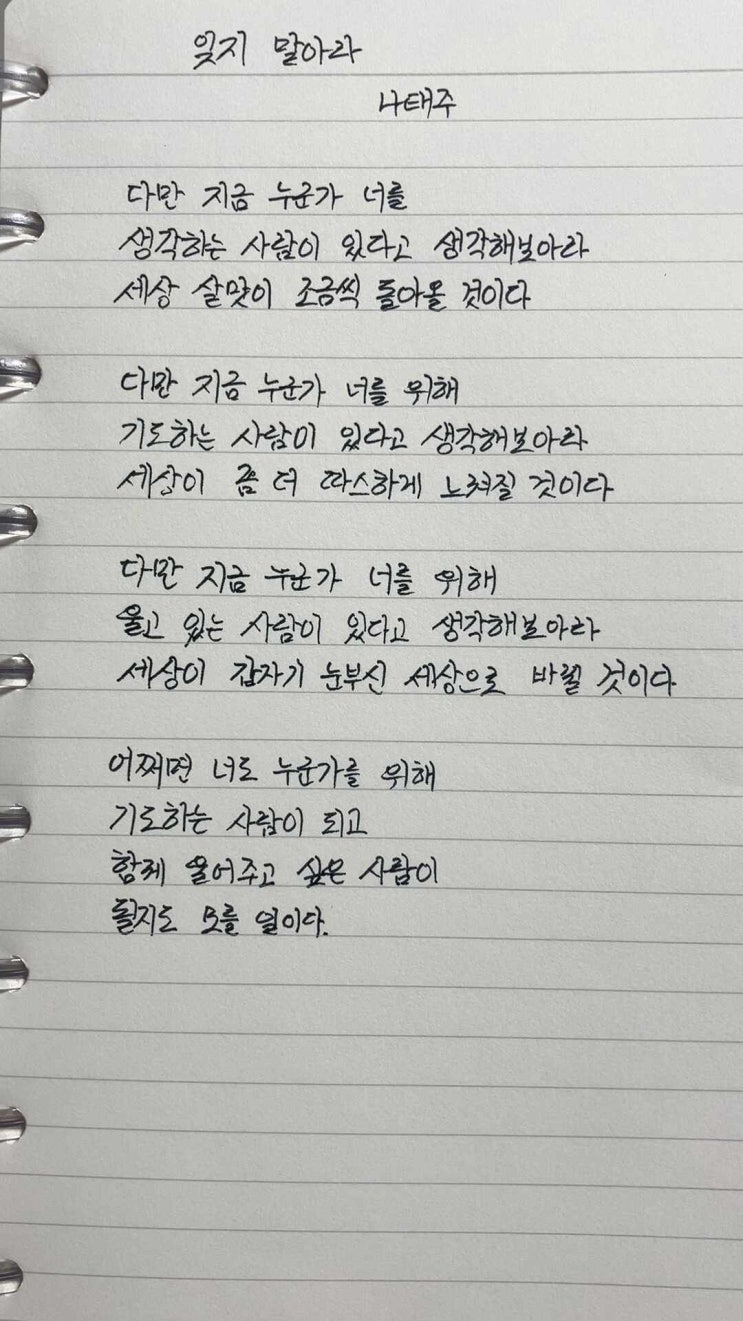 잊지 말아라
나태주
다만 지금 누군가 너를
생각하는 사람이 있다고 생각해보아라
세상 살맛이 조금씩 돌아올 것이다
다만 지금 누군가 너를 위해
기도하는 사람이 있다고 생각해보아라
세상이 좀 더 따스하게 느껴질 것이다
다만 지금 누군가 너를 위해
울고 있는 사람이 있다고 생각해보아라
세상이 갑자기 눈부신 세상으로 바뀔 것이다
어쩌면 너도 누군가를 위해
기도하는 사람이 되고
함께 울어주고 싶은 사람이
될지도 모를 일이다.